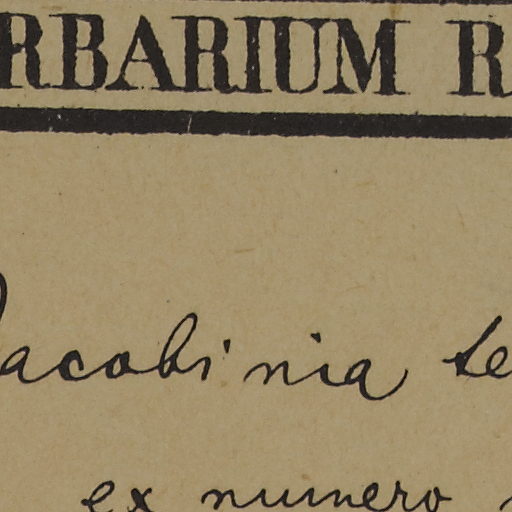 RBARIUM R
Jacobinia te
ex numero